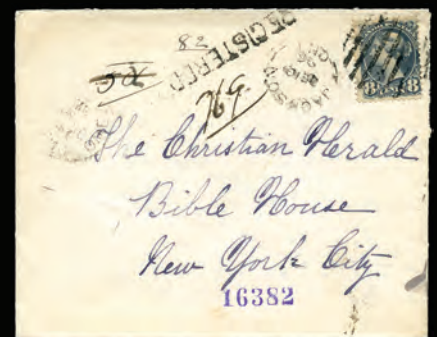 82
REGISTERED
769
8 8
The Christian Herald
Bible House
New York City
16382